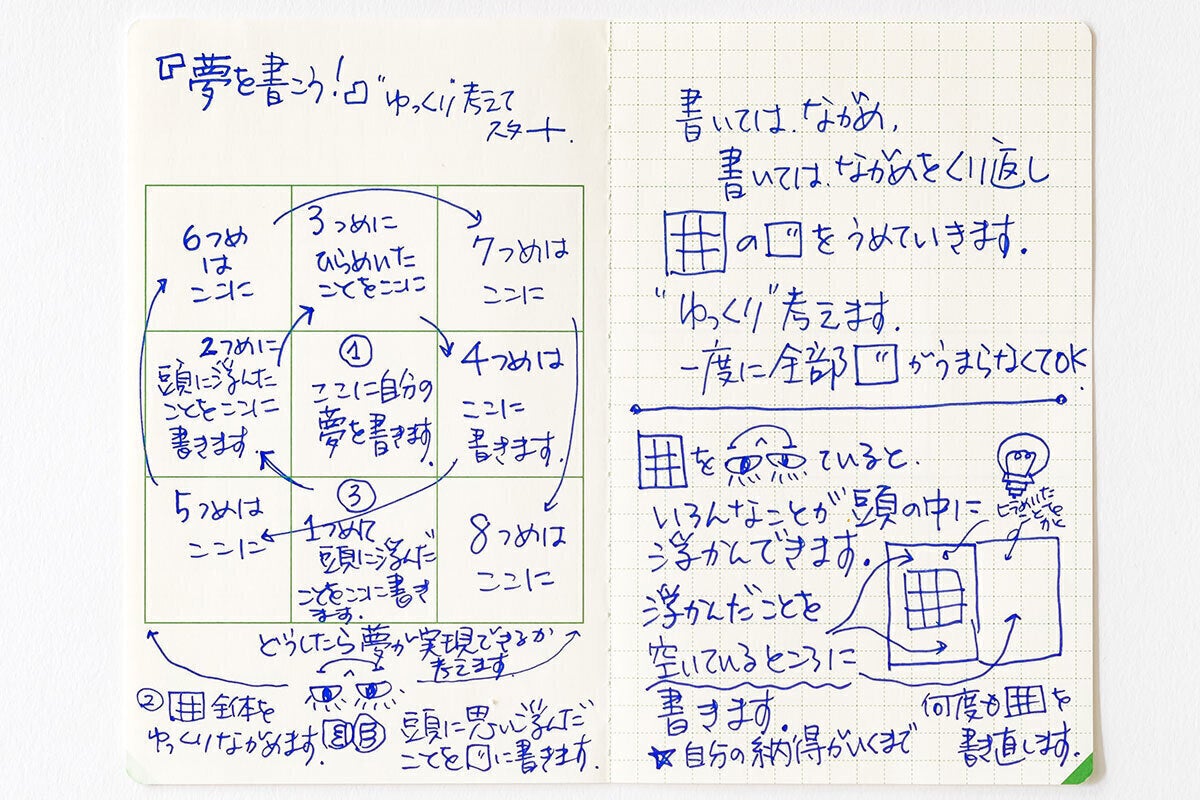 『夢を書こう!』
"ゆっくり考えて
スタート.
6つめ
は
ここに
3つめに
ひらめいた
ことをここに
7つめは
ここに
2つめに
頭に浮んだ
ことをここに
書きます.
①
ここに自分の
夢を書きます.
4つめは
ここに
書きます.
5つめは
ここに
③
1つめて
頭に浮んだ
ことをここに書き
ます.
8つめは
ここに
どうしたら夢が実現できるか
考えます.
② 全体を
ゆっくりながめます.
頭に思い浮んだ
ことを に書きます.
書いては、ながめ,
書いては、ながめをくり返し
の をうめていきます.
"ゆっくり"考えます.
一度に全部 がうまらなくてOK
を ていると、
いろんなことが頭の中に
浮かんできます.
ひらめいた
ことを
かく
浮かんだことを
空いているところに
書きます.
☆自分の納得がいくまで
何度も を
書き直します.